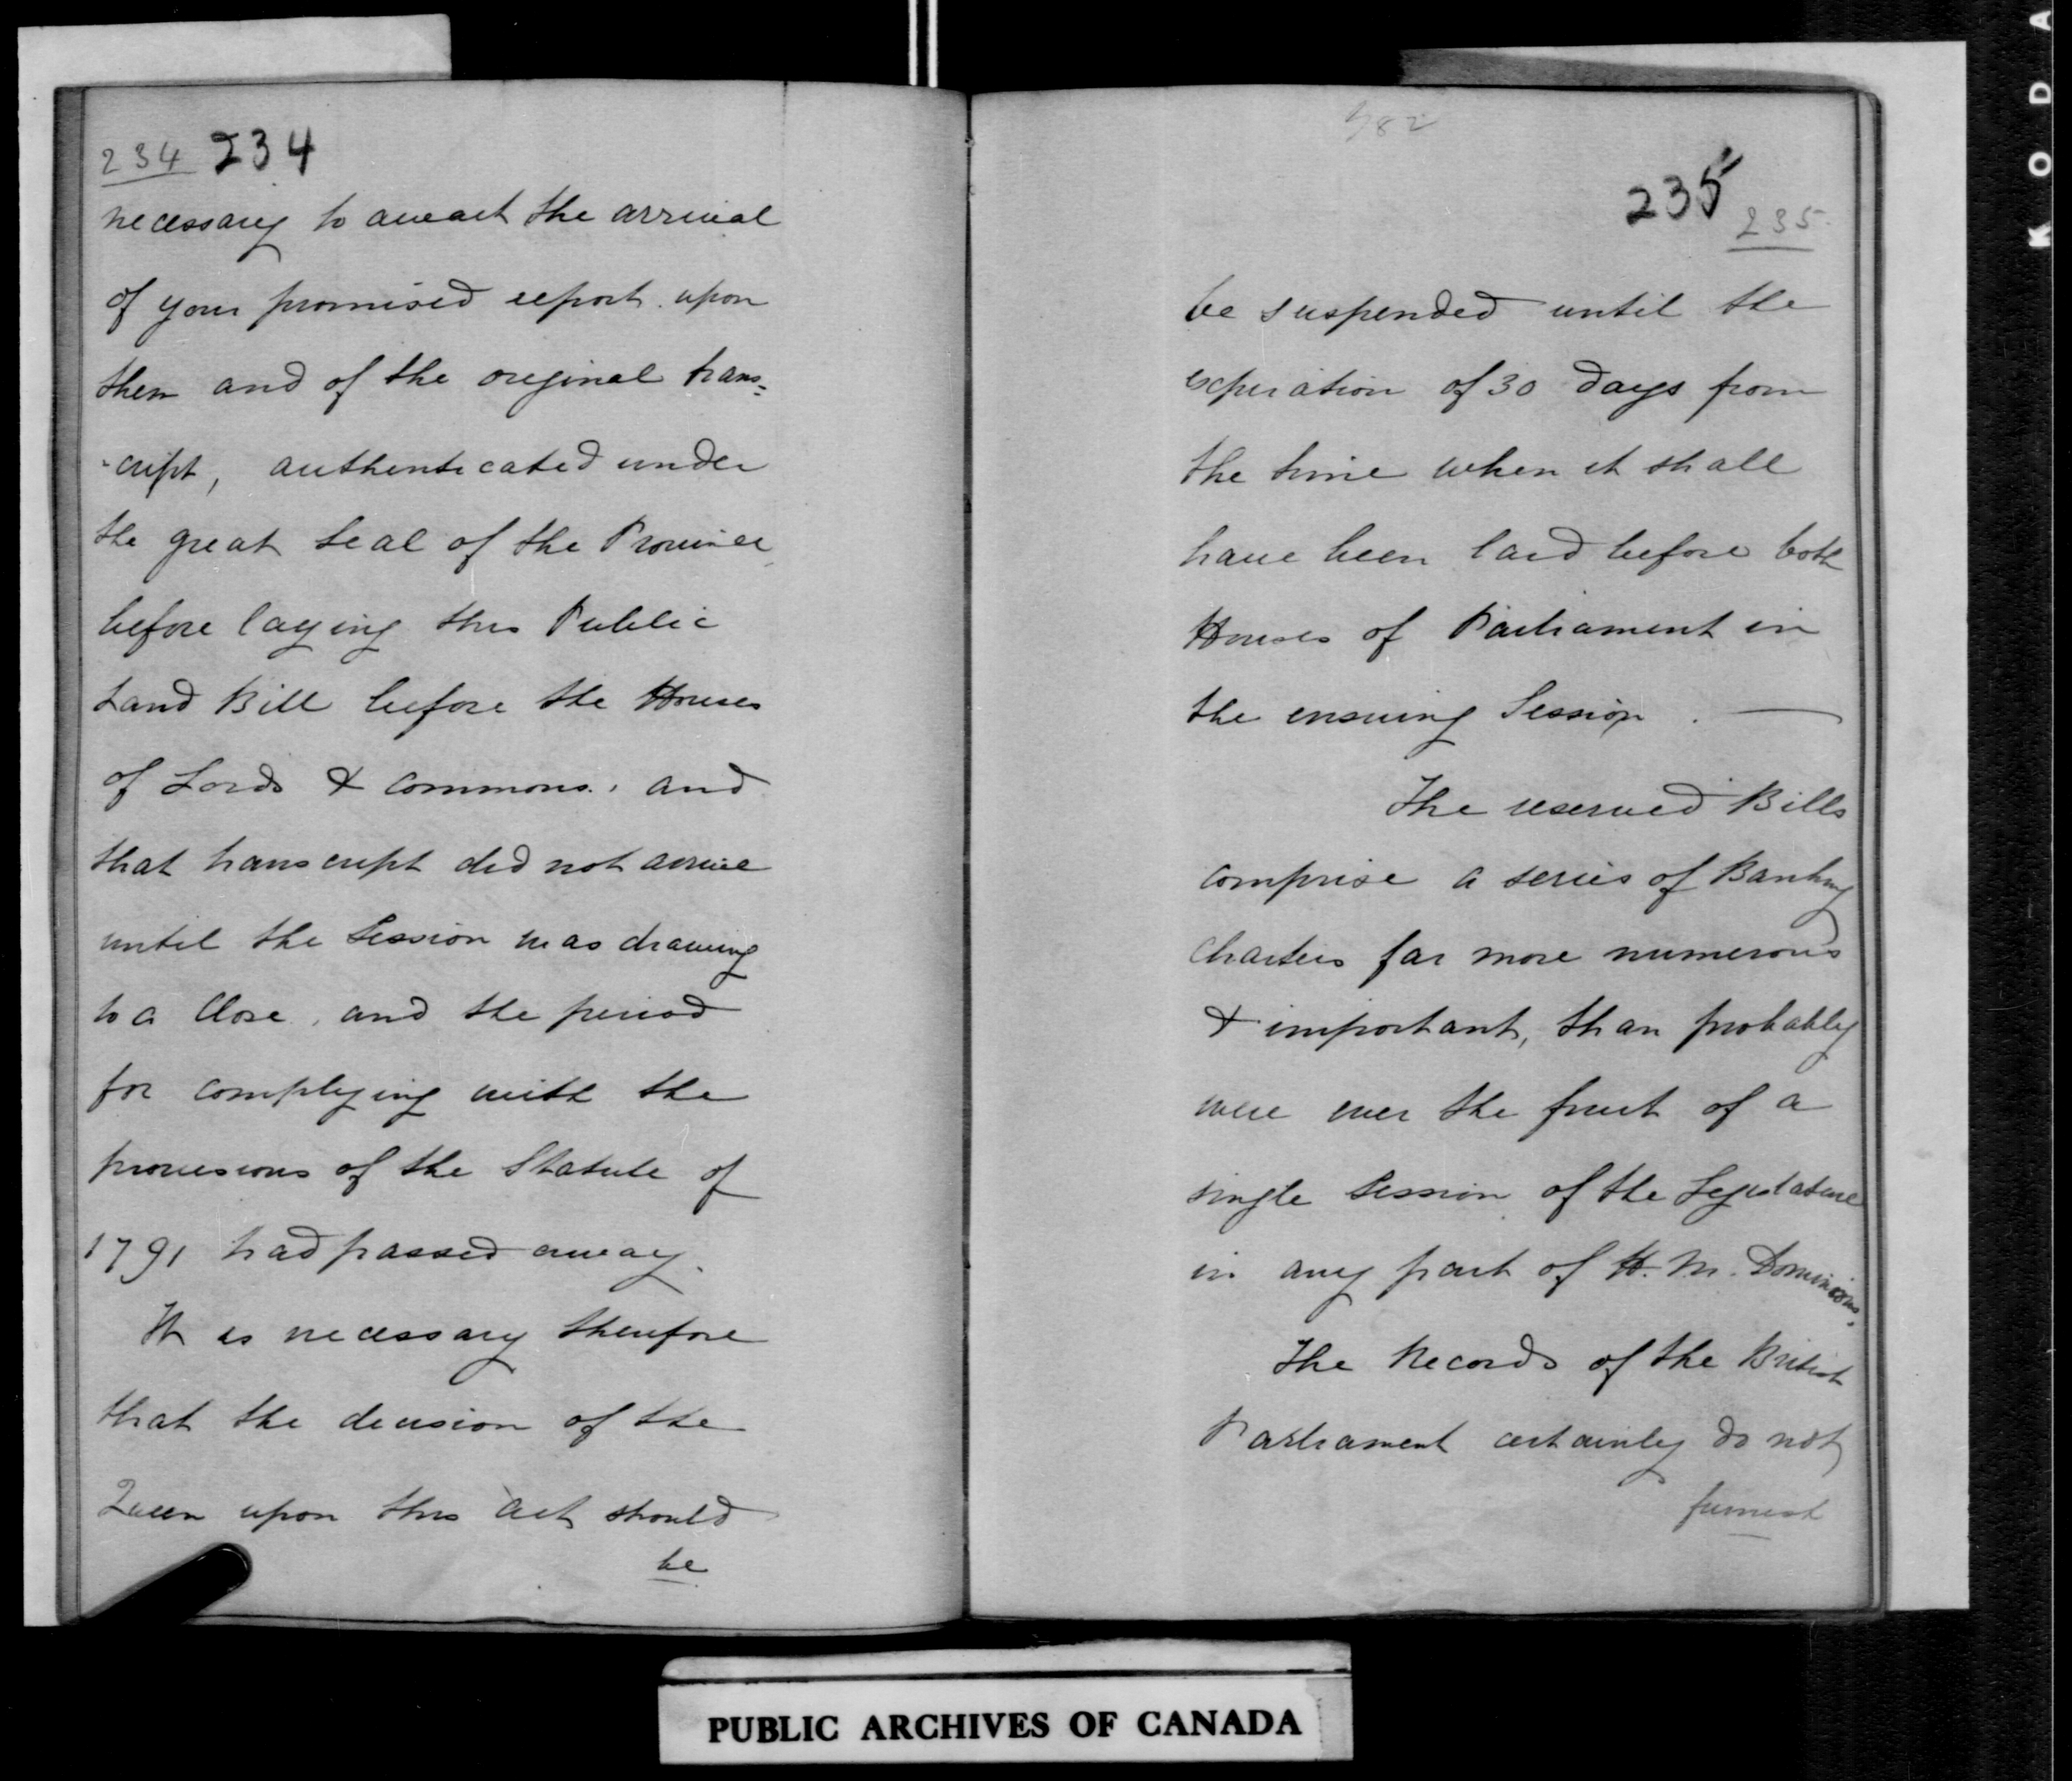 234 234
necessary to await the arrival
of your promised report upon
them and of the original trans=
-cript, authenticated under
the great Seal of the Province
before laying this Public
Land Bill before the Houses
of Lords & Commons, and
that transcript did not arrive
until the Session was drawing
to a Close, and the period
for complying with the
provisions of the Statute of
1791 had passed away.
It is necessary therefore
that the decision of the
Queen upon this Act should
be
382
235
235
be suspended until the
expiration of 30 days from
the time when it shall
have been laid before both
Houses of Parliament in
the ensuing Session. —
The reserved Bills
comprise a series of Banking
Charters far more numerous
& important, than probably
were ever the fruit of a
single Session of the Legislature
in any part of H. M. Dominions.
The Records of the British
Parliament certainly do not
furnish
KODA
PUBLIC ARCHIVES OF CANADA